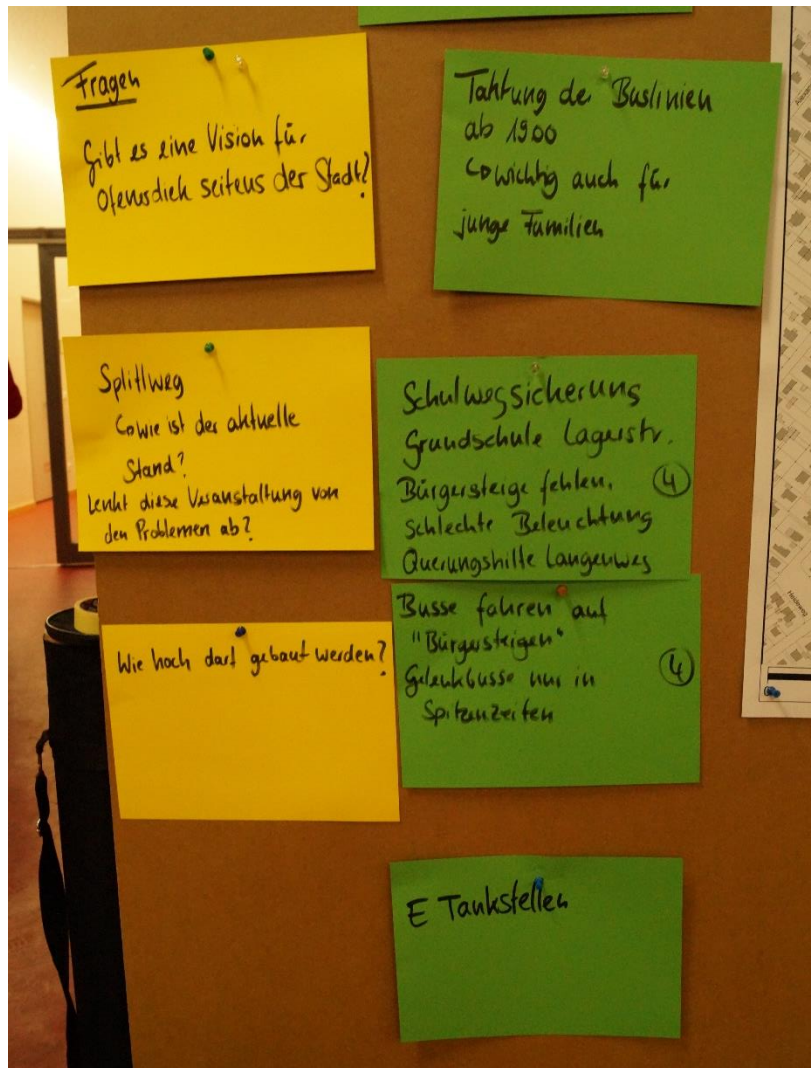 Fragen
Gibt es eine Vision für
Ofenerdiek seitens der Stadt?
Splittweg
↳ wie ist der aktuelle
Stand?
Lenkt diese Veranstaltung von
den Problemen ab?
Wie hoch darf gebaut werden?
Taktung der Buslinien
ab 1900
↳ wichtig auch für
junge Familien
Schulwegsicherung
Grundschule Lagerstr.
Bürgersteige fehlen. 4
Schlechte Beleuchtung
Querungshilfe Langenweg
Busse fahren auf
"Bürgersteigen"
Gelenkbusse nur in 4
Spitzenzeiten
E Tankstellen
Heideweg